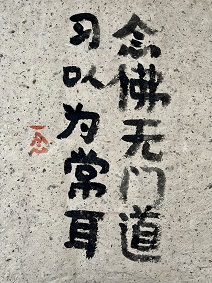 念佛无门道
习以为常耳